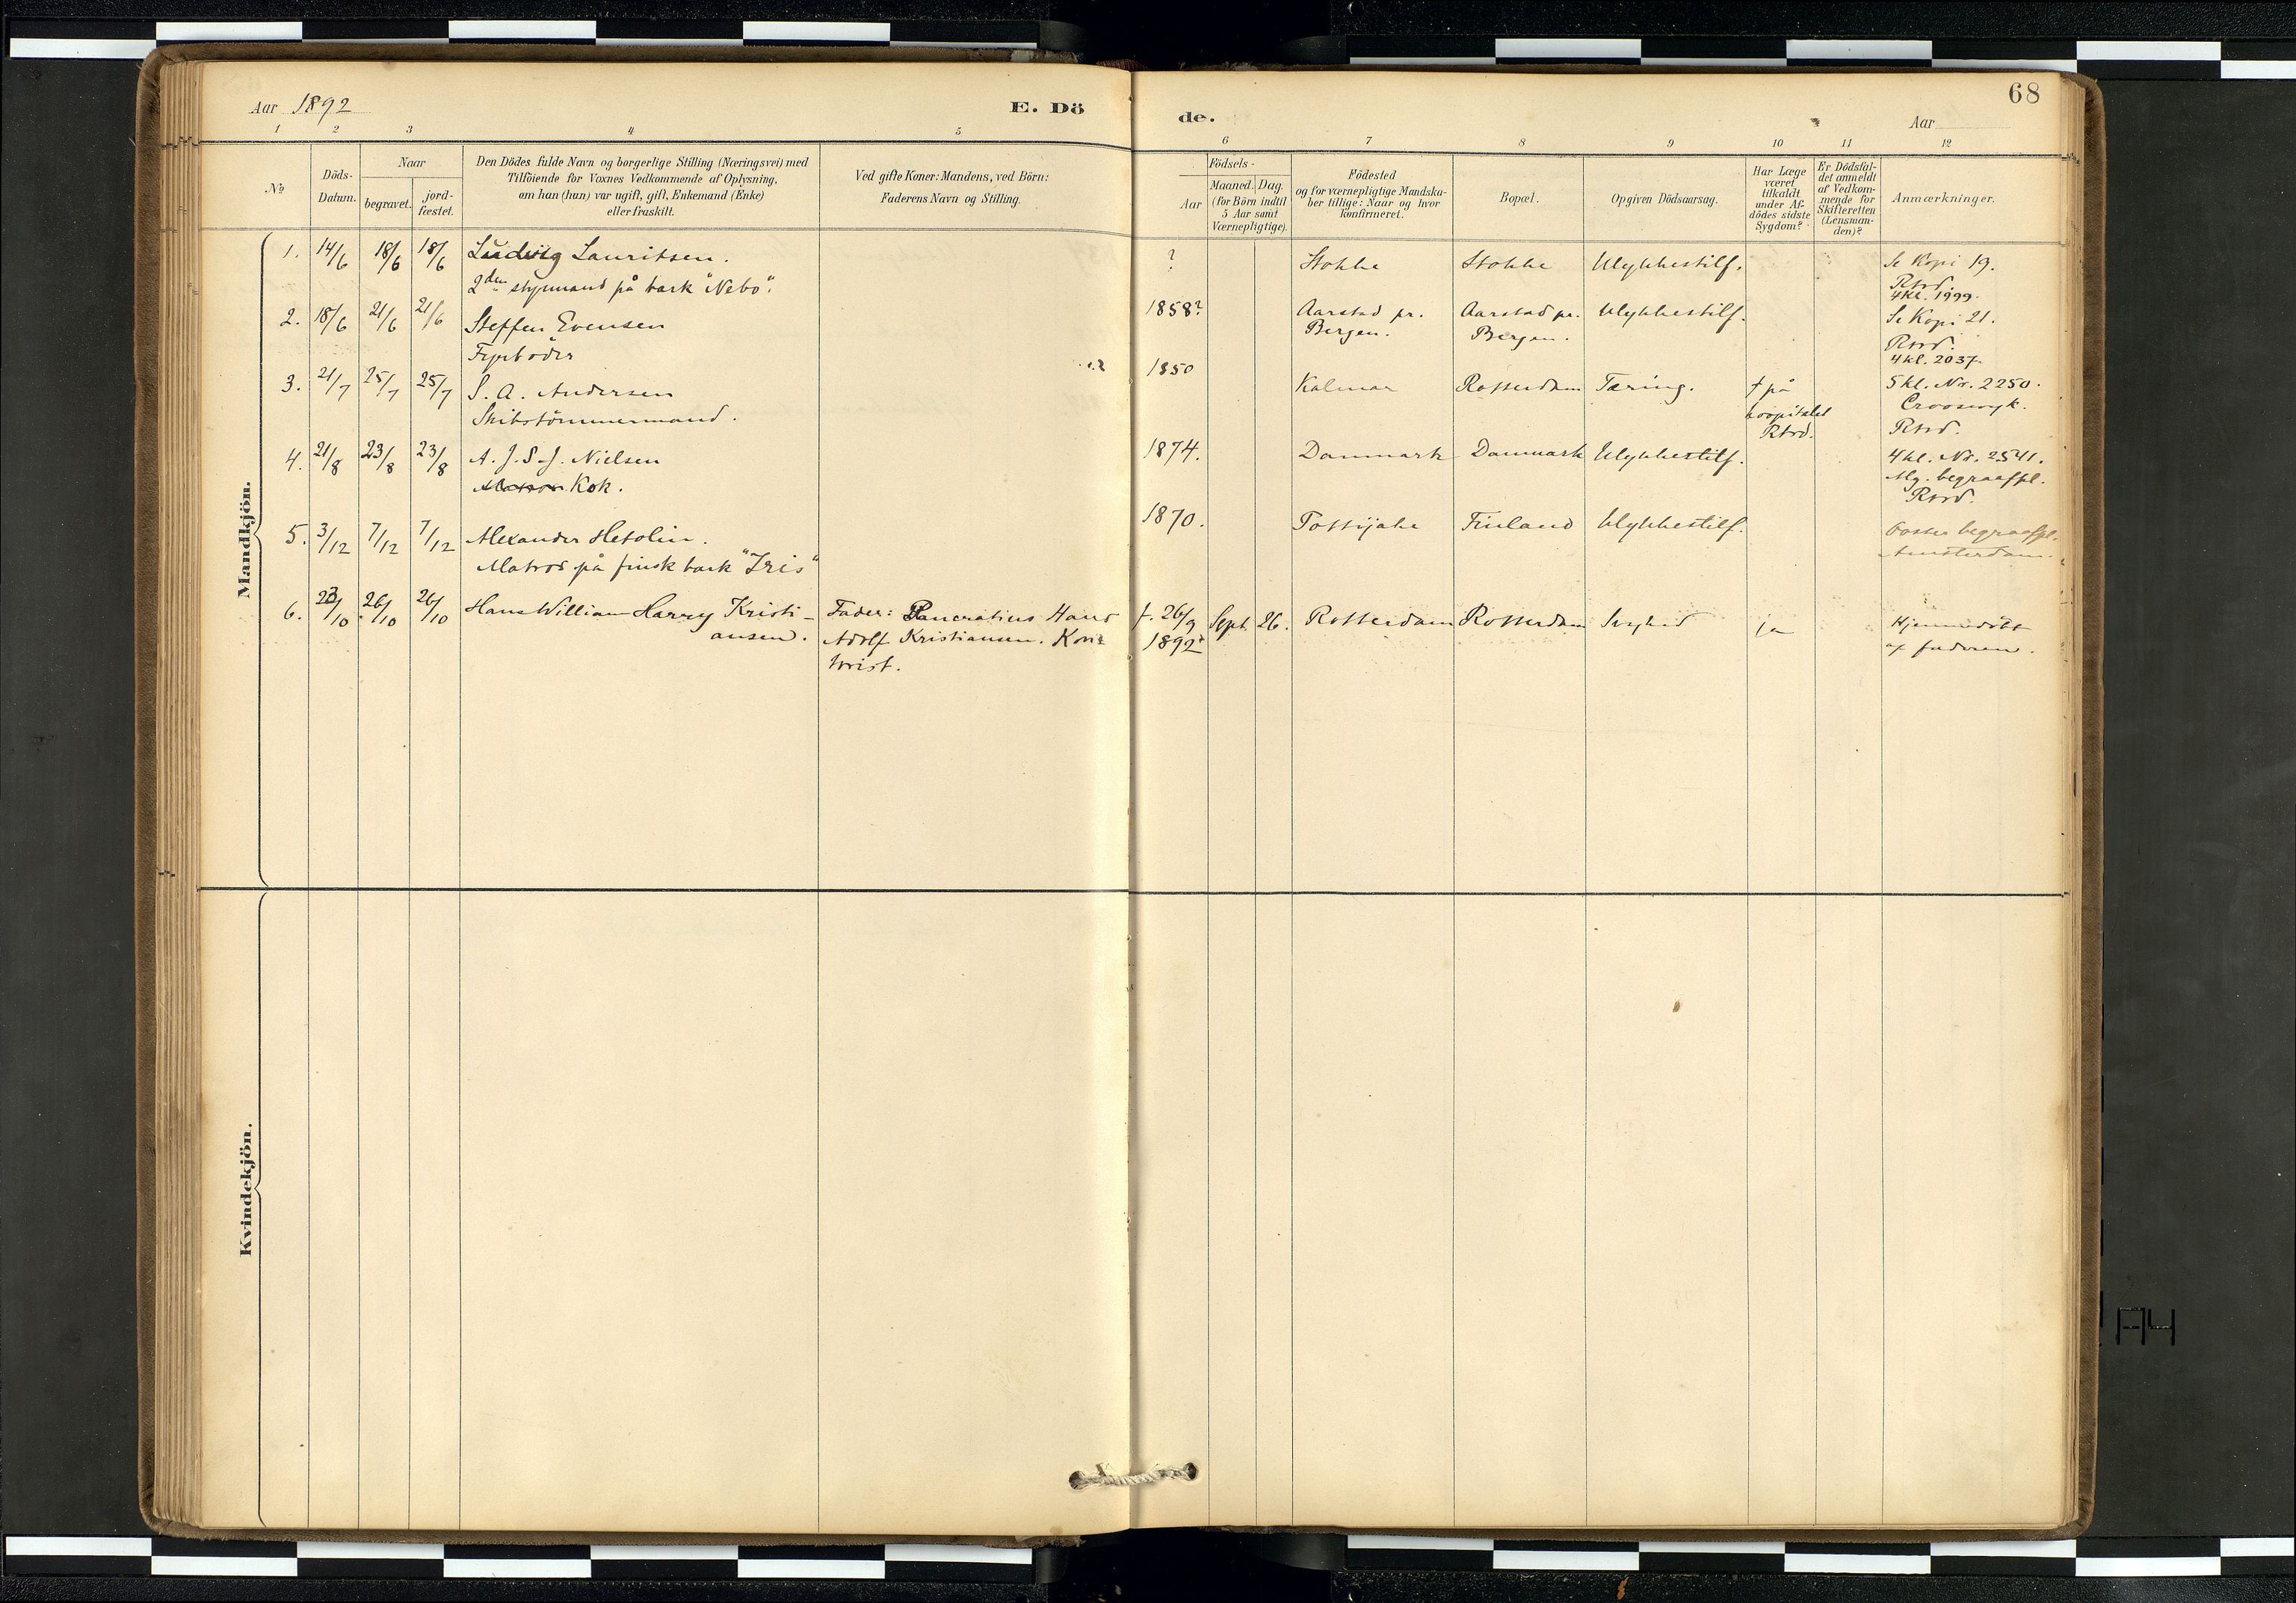 Aar 1892
E. Dö
de.
68
Aar
1 2 3 4 5 6 7 8 9 10 11 12
No
Döds-
Datum.
Naar
begravet.
jord-
fæstet.
Den Dödes fulde Navn og borgerlige Stilling (Næringsvei) med
Tilföiende for Voxnes Vedkommende af Oplysning,
om han (hun) var ugift, gift, Enkemand (Enke)
eller fraskilt.
Ved gifte Koner: Mandens, ved Börn:
Faderens Navn og Stilling.
Födsels-
Aar
Maaned. Dag.
(for Börn indtil
5 Aar samt
Værnepligtige).
Födested
og for værnepligtige Mandska-
ber tillige: Naar og hvor
konfirmeret.
Bopæl.
Opgiven Dödsaarsag.
Har Læge
været
tilkaldt
under Af-
dödes sidste
Sygdom?
Er Dödsfal-
det anmeldt
af Vedkom-
mende for
Skifteretten
(Lensman-
den)?
Anmærkninger.
Mandkjön.
1. 14/6 18/6 18/6 Ludvig Lauritsen. ? Stokke Stokke Ulykkestilf. Se Kopi 19.
2den styrmand på bark "Nebo". Rtrd.
4kl. 1999.
2. 18/6 21/6 21/6 Steffen Evensen 1858? Aarstad pr. Aarstad pr. Ulykkestilf. Se Kopi 21.
Fyrböder Bergen. Bergen. Rtrd.
4kl. 2037.
3. 21/7 25/7 25/7 S. A. Andersen 1850 Kalmar Rotterdam Tæring. † på 5kl. Nr. 2250.
Skibstömmermand. hospitalet Crooswyk.
Rtrd. Rtrd.
4. 21/8 23/8 23/8 A. J. S. J. Nielsen 1874. Danmark Danmark Ulykkestilf. 4kl. Nr. 2541.
Matros Kok. Alg. begraafpl.
Rtrd.
5. 3/12 7/12 7/12 Alexander Hetolin. 1870. Tottijahe Finland Ulykkestilf. Ooster begraafpl.
Matros på finsk bark "Iris" Amsterdam.
6. 23/10 26/10 26/10 Hans William Harry Kristi- Fader: Pancratius Hans f. 26/9 Sept. 26. Rotterdam Rotterdam Svaghed ja Hjemmedöbt
ansen. Adolf Kristiansen. Kon- 1892 af faderen.
Kvindekjön.